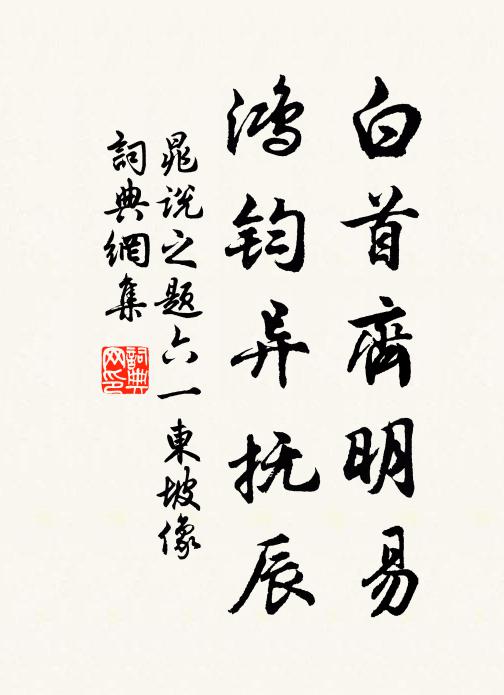 白首齊明易
鸿钧异抚辰
晁说之题六一東坡像
詞典網集
詞典网印